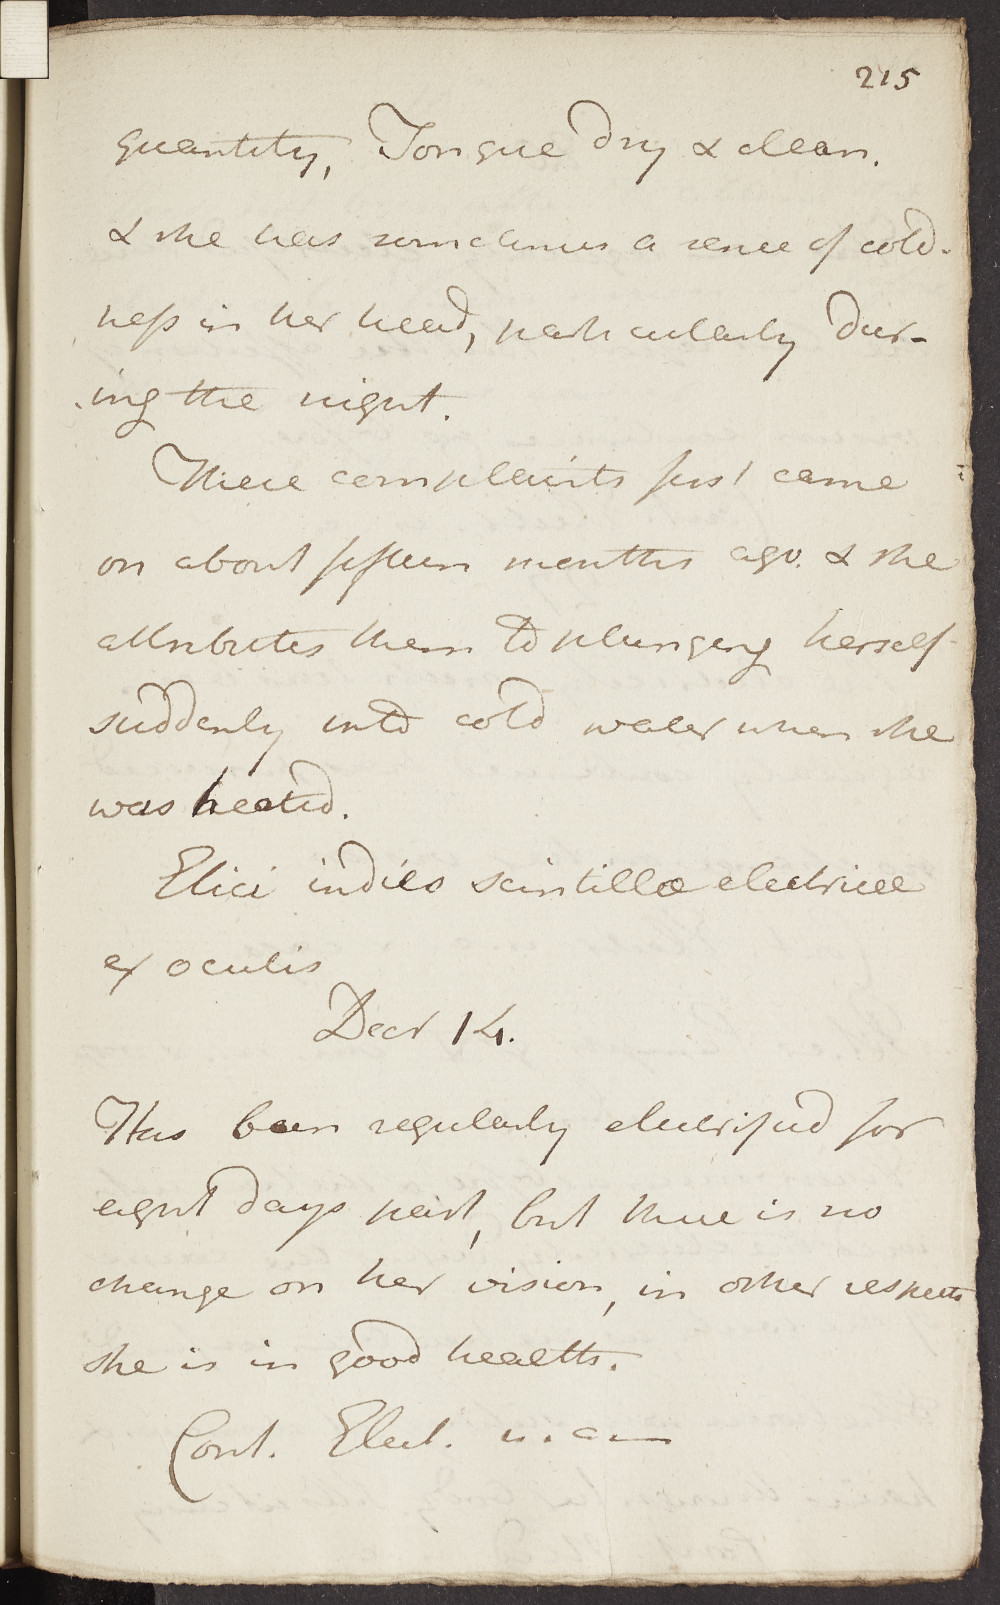 215
quantity, Tongue dry & clean.
& she has sometimes a sence of cold-
neſs in her head, particularly dur-
ing the night.
These complaints first came
on about fifteen months ago. & she
attributes them to plunging herself
suddenly into cold water when she
was heated.
Elici indies scintillæ electricæ
ex oculis
Decr 14.
Has been regularly electrified for
eight days past, but there is no
change on her vision, in other respects
she is in good health.
Cont. Elect.